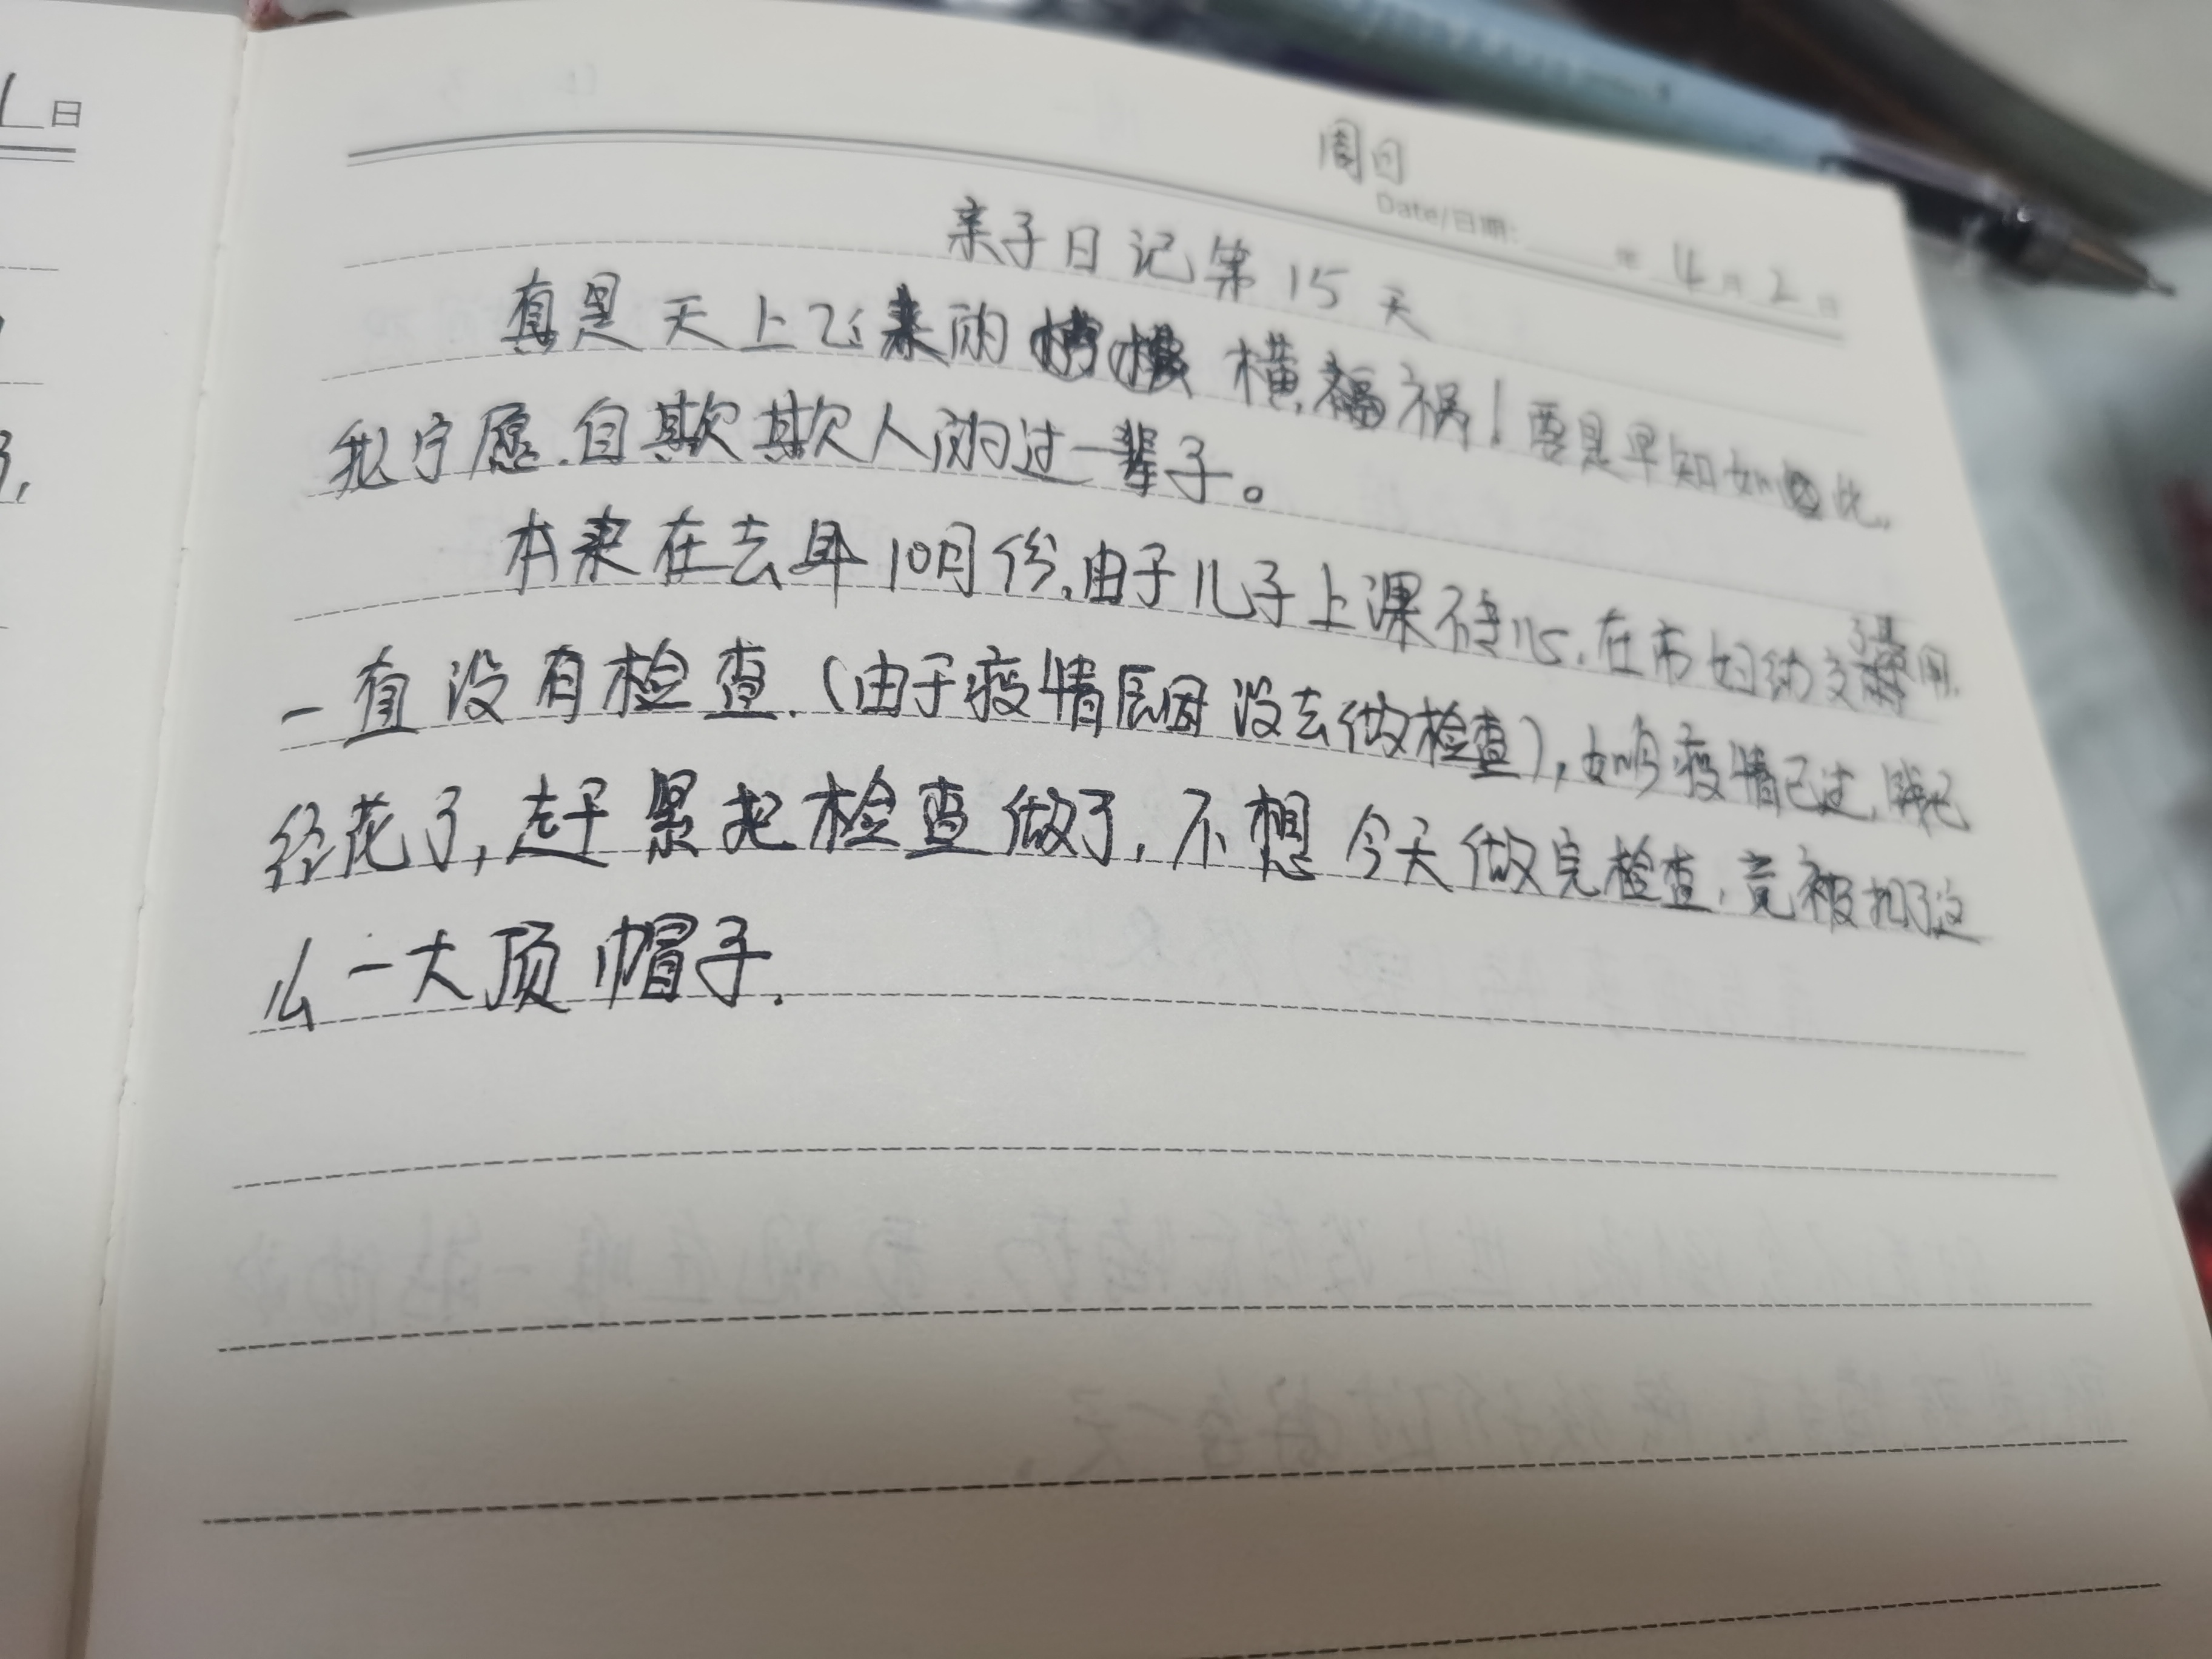 日
周日
Date/日期: 年 4月 2日
亲子日记第15天
真是天上飞来的 横祸！要是早知如此,
我宁愿.自欺欺人的过一辈子。
本来在去年10月份.由于儿子上课不专心.在市妇幼交了费用.
一直没有检查.(由于疫情原因没去做检查),如今疫情已过,钱已
经花了,赶紧把检查做了.不想今天做完检查.竟被扣了这
么一大顶帽子.